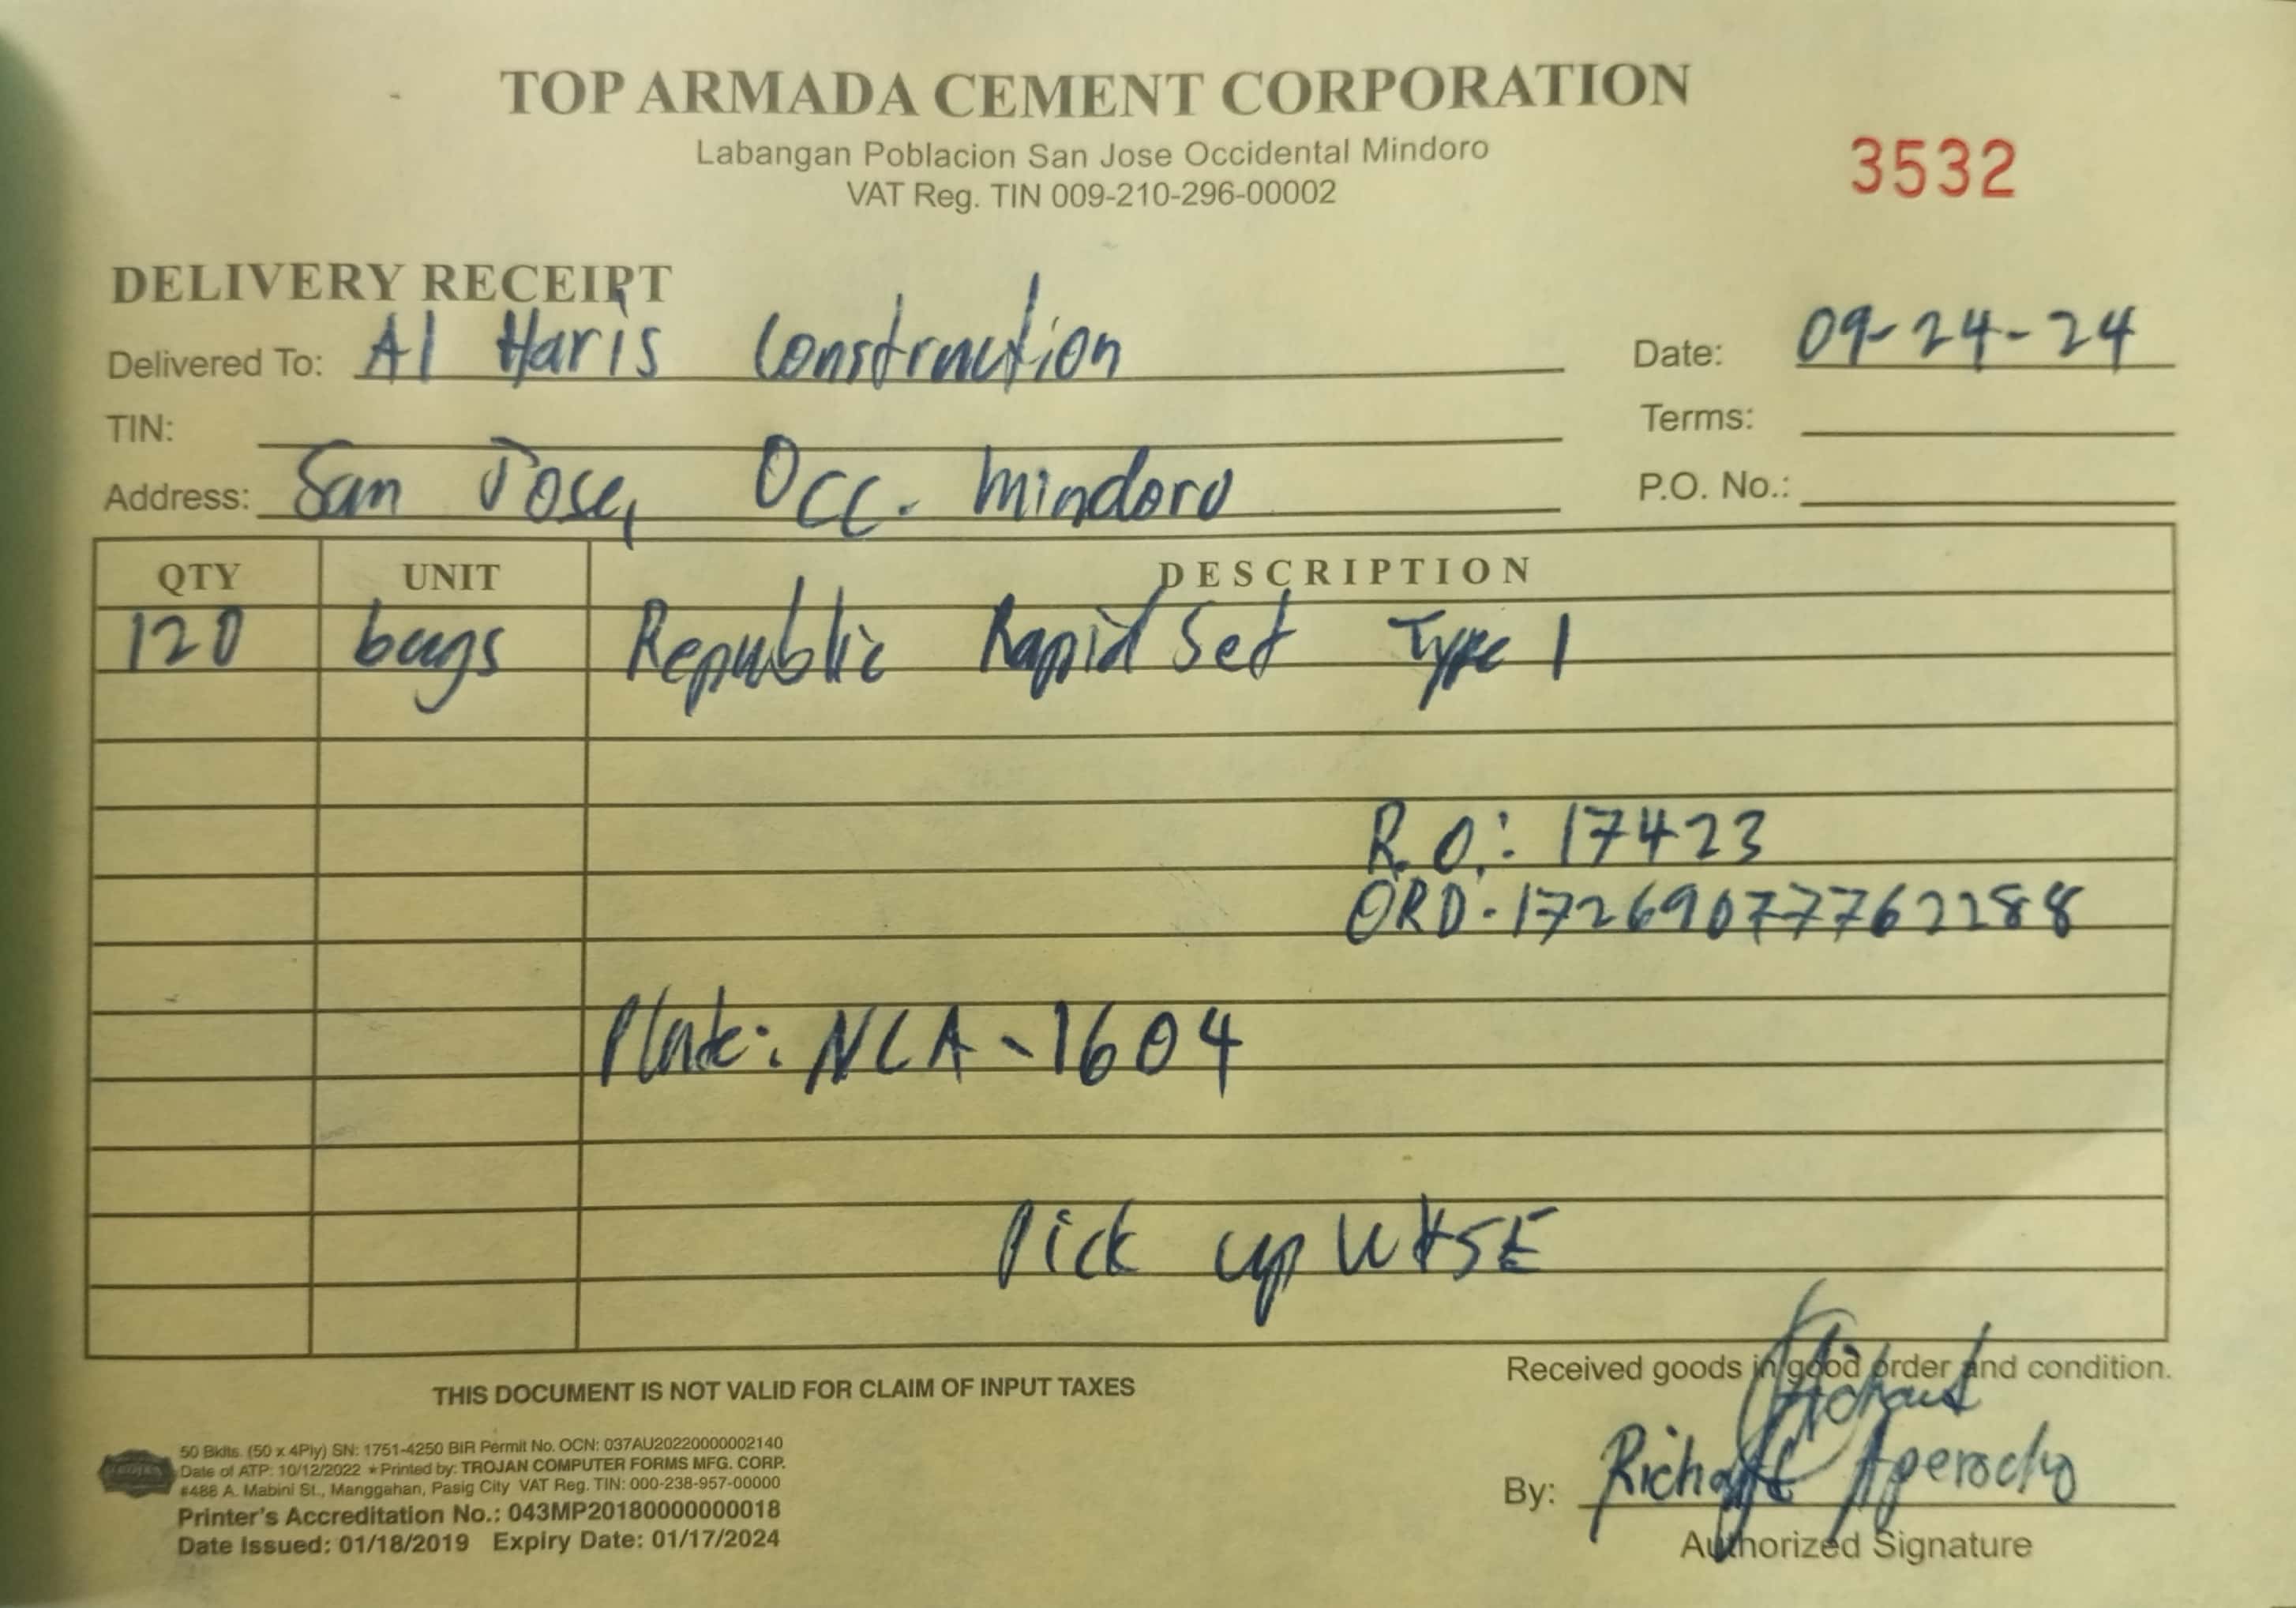 TOP ARMADA CEMENT CORPORATION
Labangan Poblacion San Jose Occidental Mindoro
VAT Reg. TIN 009-210-296-00002
3532
DELIVERY RECEIPT
Delivered To: Al Haris Construction
Date: 09-24-24
TIN:
Terms:
Address: San Jose, Occ. Mindoro
P.O. No.:
QTY UNIT DESCRIPTION
120 bags Republic Rapid Set Type 1
R.O.: 17423
ORD-17269077762288
Plate: NCA-1604
Pick up WHSE
Received goods in good order and condition.
THIS DOCUMENT IS NOT VALID FOR CLAIM OF INPUT TAXES
50 Bklts. (50 x 4Ply) SN: 1751-4250 BIR Permit No. OCN: 037AU20220000002140
Date of ATP: 10/12/2022 ★Printed by: TROJAN COMPUTER FORMS MFG. CORP.
#488 A. Mabini St., Manggahan, Pasig City VAT Reg. TIN: 000-238-957-00000
Printer's Accreditation No.: 043MP20180000000018
Date Issued: 01/18/2019 Expiry Date: 01/17/2024
By: Richard
Authorized Signature